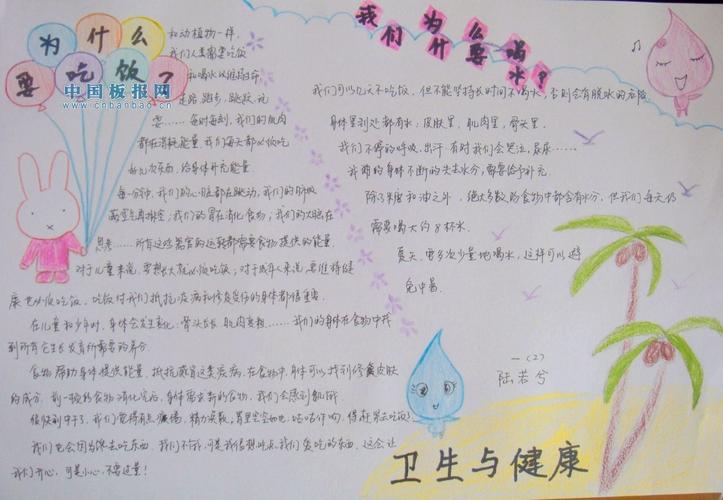 为什么
要吃饭?
中国板报网
www.cnbanbao.cn
和动植物一样,
我们人类需要吃饭
和喝水以维持生命。
走路、跑步、跳跃、玩
耍……每时每刻,我们的肌肉
都在消耗能量。我们每天都必须吃
好几次东西,给身体补充能量。
每一分钟,我们的心脏都在跳动;我们的肺吸
我们的胃在消化食物;我们的大脑在
思考……所有这些器官的运转都需要食物提供的能量。
对于儿童来说,要想长大就必须吃饭;对于成年人来说,要维持健
康也必须吃饭。吃饭对我们抵抗疾病和修复受伤的身体都很重要。
在儿童和少年时,身体会发生变化:骨头长长,肌肉变粗……我们的身体在食物中找
到所有它生长发育所需要的养分。
食物帮助身体提供能量,抵抗感冒这类疾病。在食物中,身体可以找到修复皮肤
的成分。前一顿的食物消化完后,身体需要新的食物,我们会感到饥饿。
很快到中午了,我们觉得有点疲倦,精力涣散,胃里空空如也,咕咕作响,得赶紧去吃饭了。
我们也会因为馋去吃东西。我们不饿,可是我们很想吃点我们爱吃的东西。这会让
我们开心,可是小心,不要过量!
我们为什么要喝
水?
我们可以几天不吃饭,但不能坚持长时间不喝水,否则会有脱水的危险
身体里到处都有水:皮肤里,肌肉里,骨头里。
我们不停的呼吸、出汗,有时我们会哭泣、尿尿……
我们的身体不断的失去水分,需要给予补充。
除了糖和油之外,绝大多数的食物中都含有水分,但我们每天仍
需要喝大约8杯水。
夏天,要多次少量地喝水,这样可以避
免中暑。
一(2)
陆若兮
卫生与健康